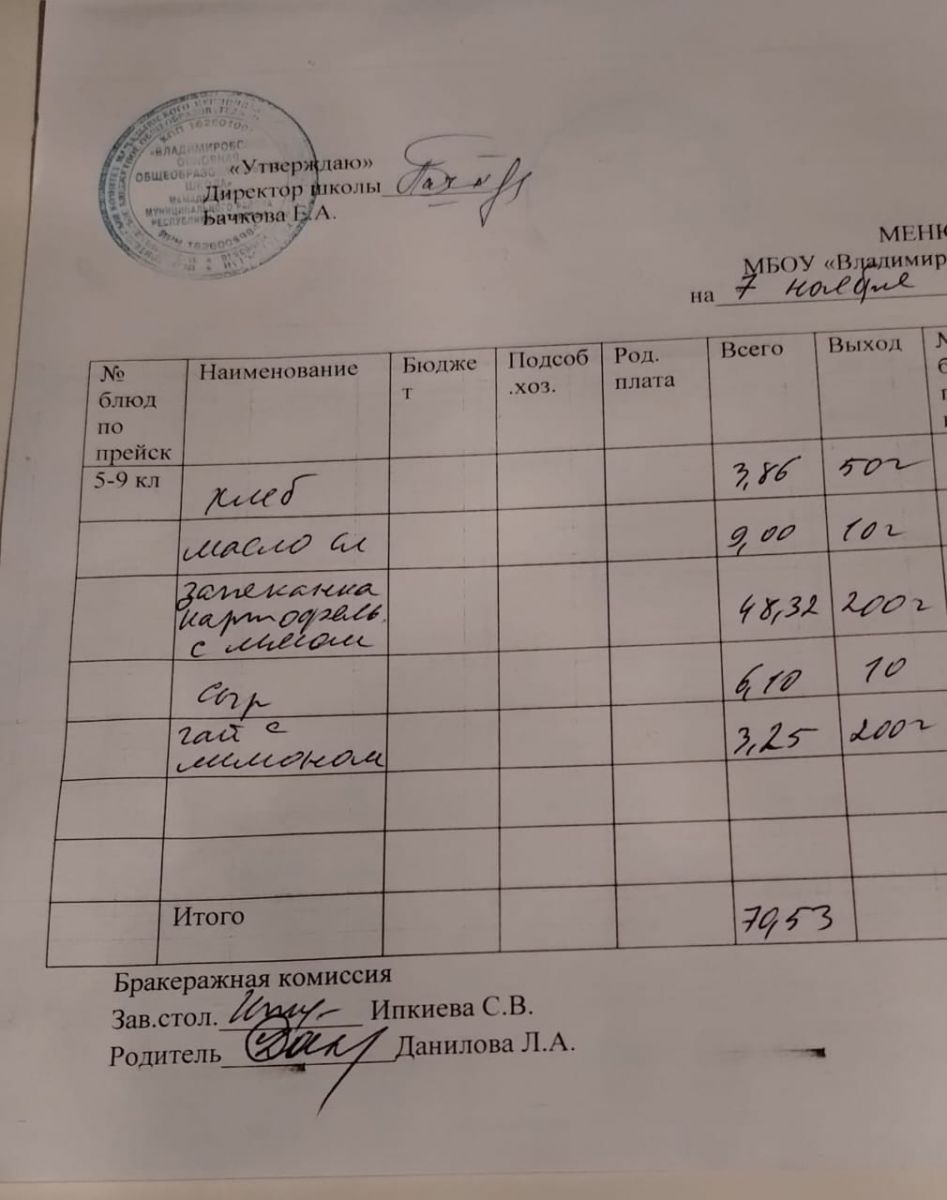 «ВЛАДИМИРОВС
ОСНОВНАЯ
ОБЩЕОБРАЗО
ШКОЛА»
«Утверждаю»
Директор школы
Бачкова Е.А.
МЕНЮ
МБОУ «Владимир
на 7 ноября
№ блюд по прейск Наименование Бюджет Подсоб.хоз. Род. плата Всего Выход
5-9 кл хлеб 3,86 50г
масло сл 9,00 10г
запеканка
картофель.
с мясом 48,32 200г
сыр 6,10 10
чай с
лимоном 3,25 200г
Итого 70,53
Бракеражная комиссия
Зав.стол. Ипкиева С.В.
Родитель Данилова Л.А.